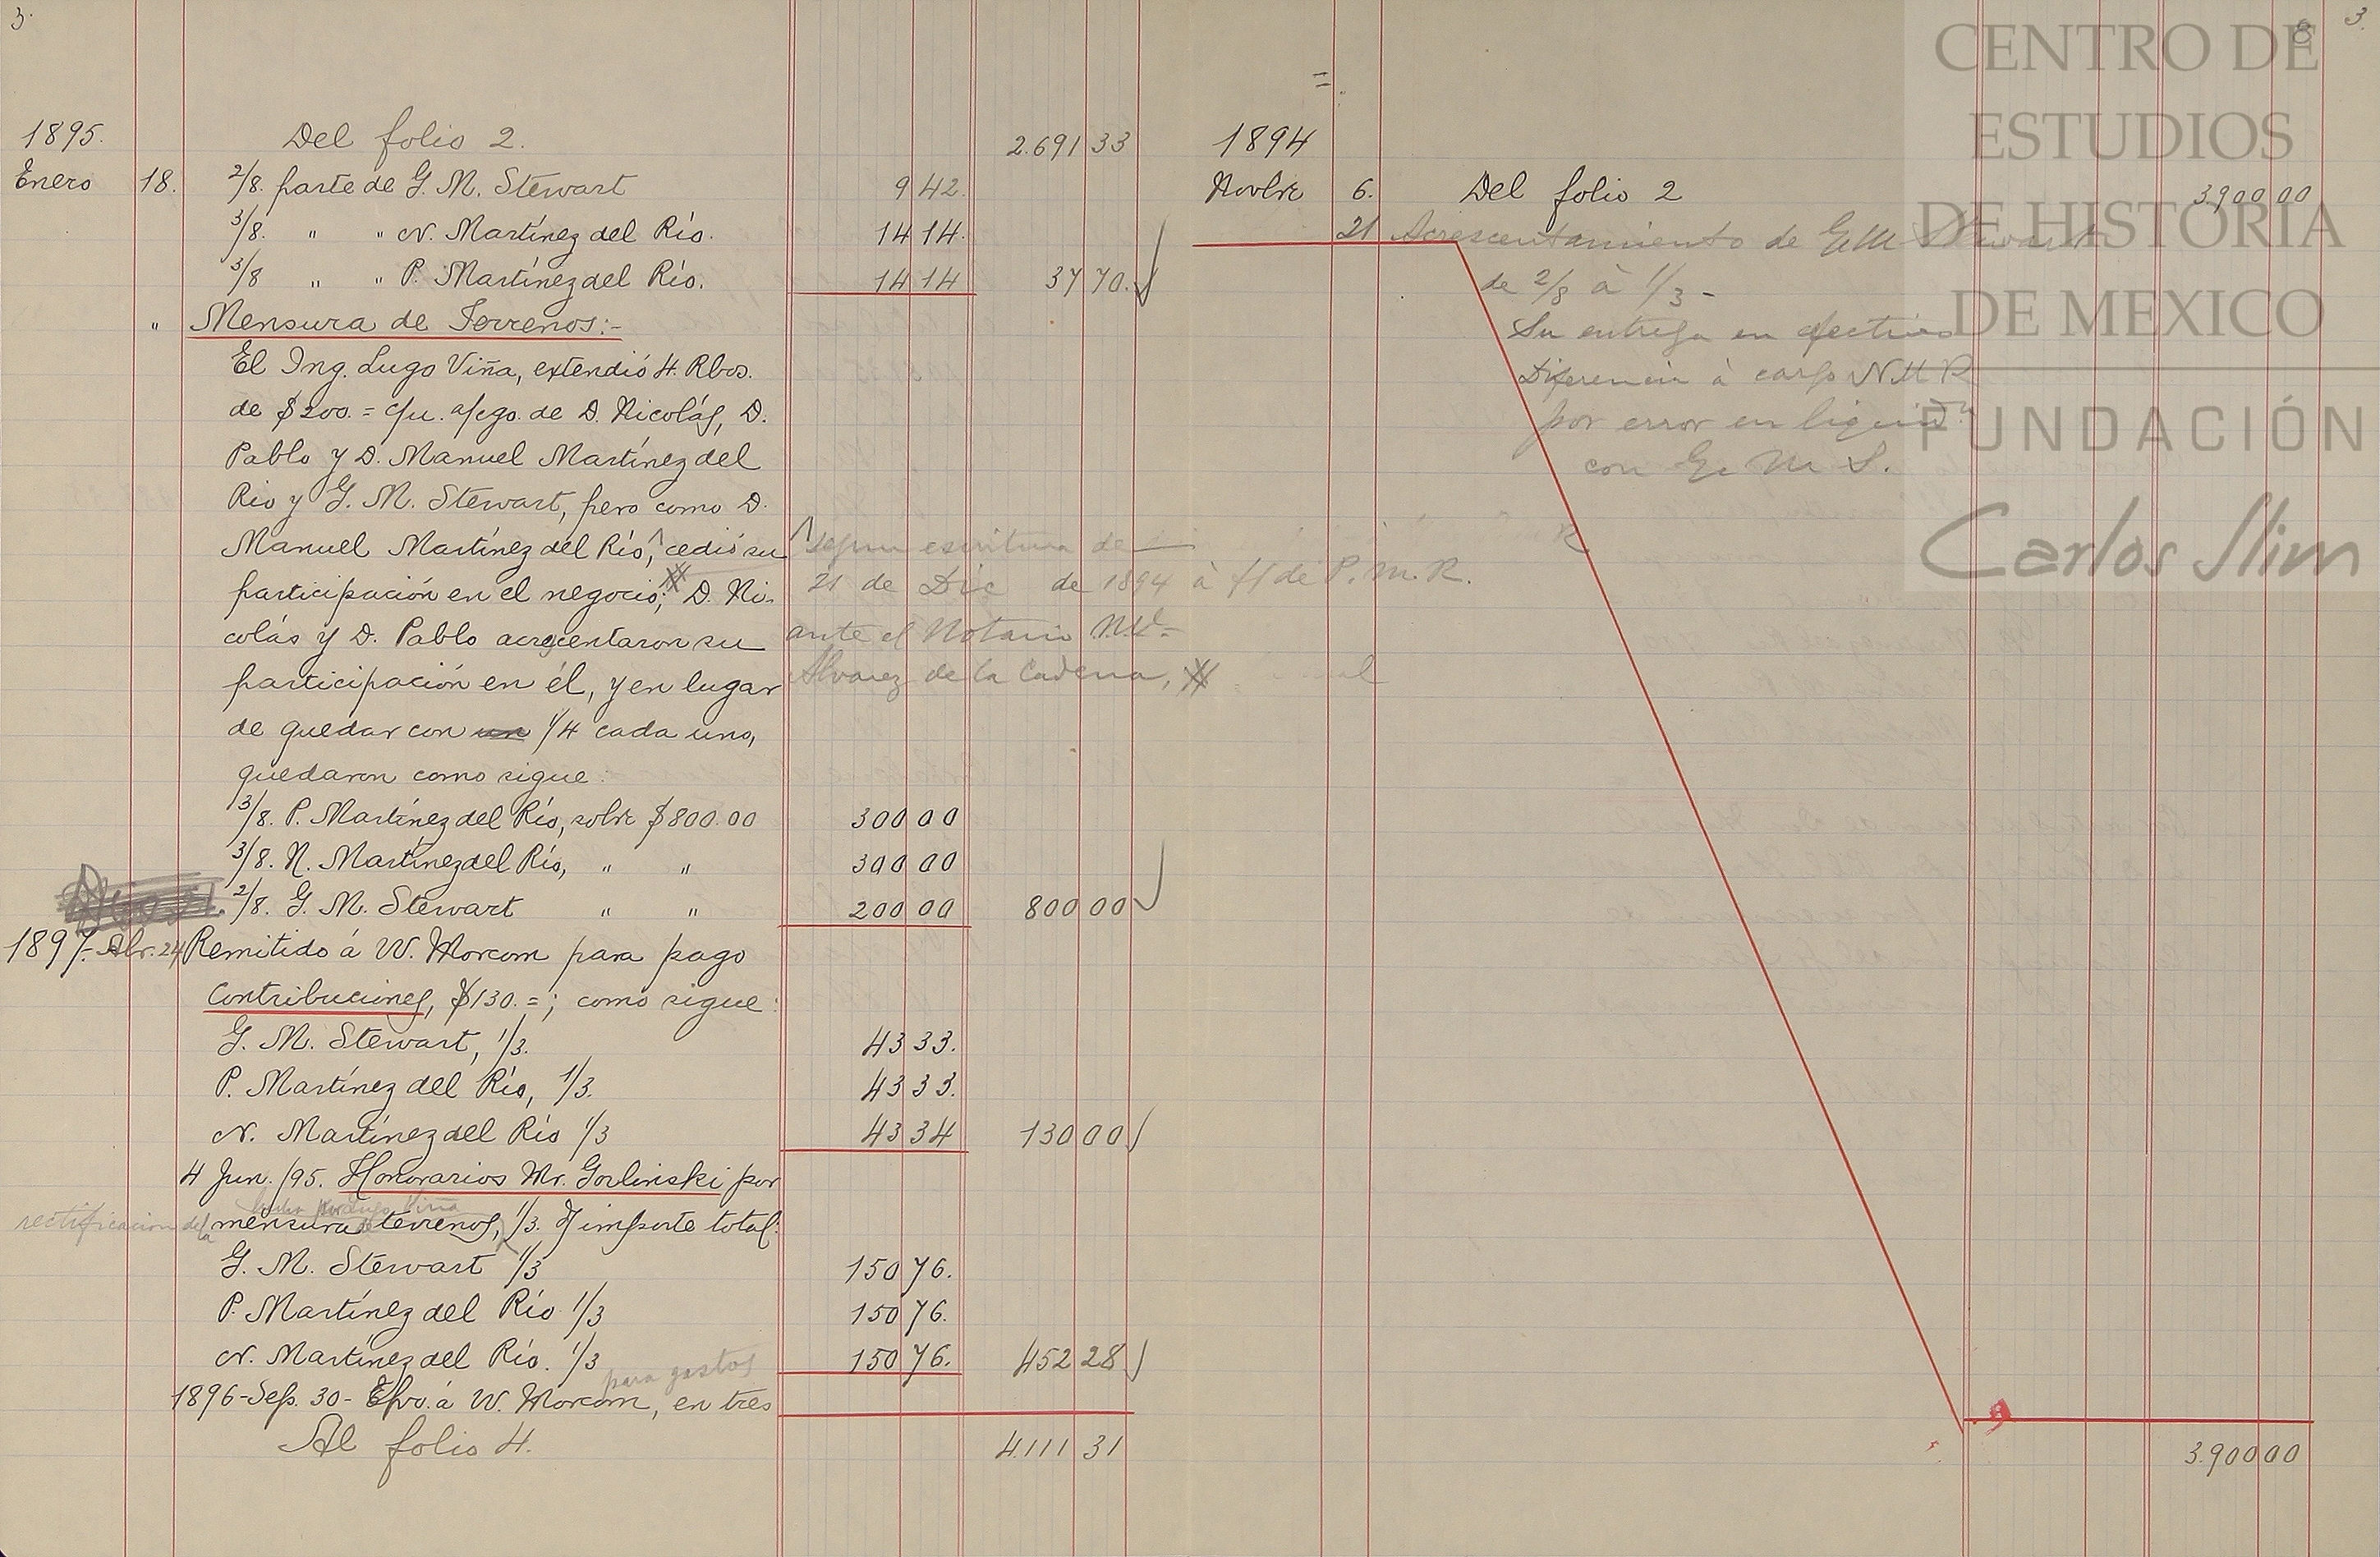 3.
1895. Del folio 2. 2.691 33
Enero 18. 2/8. parte de G. M. Stewart 9 42.
3/8. " " N. Martínez del Río. 14 14.
3/8 " " P. Martínez del Río. 14 14 37 70.
" Mensura de Terrenos:-
El Ing. Lugo Viña, extendió 4. Rbos.
de $200.= c/u. a/cgo. de D. Nicolás, D.
Pablo y D. Manuel Martínez del
Rio y G. M. Stewart, pero como D.
Manuel Martínez del Río, cedió su
participación en el negocio; D. Ni-
colás y D. Pablo acrecentaron su
participación en él, y en lugar
de quedar con un 1/4 cada uno,
quedaron como sigue:
segun escritura de
21 de Dic de 1894 à ff de P. M. R.
ante el Notario
Alvarez de la Cadena,
3/8. P. Martínez del Río, sobre $800.00 300 00
3/8. N. Martínez del Río, " " 300 00
2/8. G. M. Stewart " " 200 00 800 00
1897.- Abr. 24 Remitido á W. Morcom para pago
Contribuciones, $130.=; como sigue:
G. M. Stewart, 1/3. 43 33.
P. Martínez del Río, 1/3. 43 33.
N. Martínez del Río 1/3 43 34 130 00
4 Jun. /95. Honorarios Mr. Gorlinski por
hecha por Lugo Viña
rectificacion de la mensura de terrenos, 1/3. importe total:
G. M. Stewart 1/3 150 76.
P. Martínez del Río 1/3 150 76.
N. Martínez del Río. 1/3 150 76. 452 28
para gastos
1896-Sep. 30- Efvo. á W. Morcom, en tres
Al folio 4. 4.111 31
8 3.
1894
Novbre 6. Del folio 2 3,900 00
21 Acrescentamiento de G M Stewart
de 2/8 à 1/3 -
Su entrega en efectivo
Diferencia à cargo N M R
por error en liquidn
con G. M. S.
3.900 00
CENTRO DE
ESTUDIOS
DE HISTORIA
DE MEXICO
FUNDACIÓN
Carlos Slim